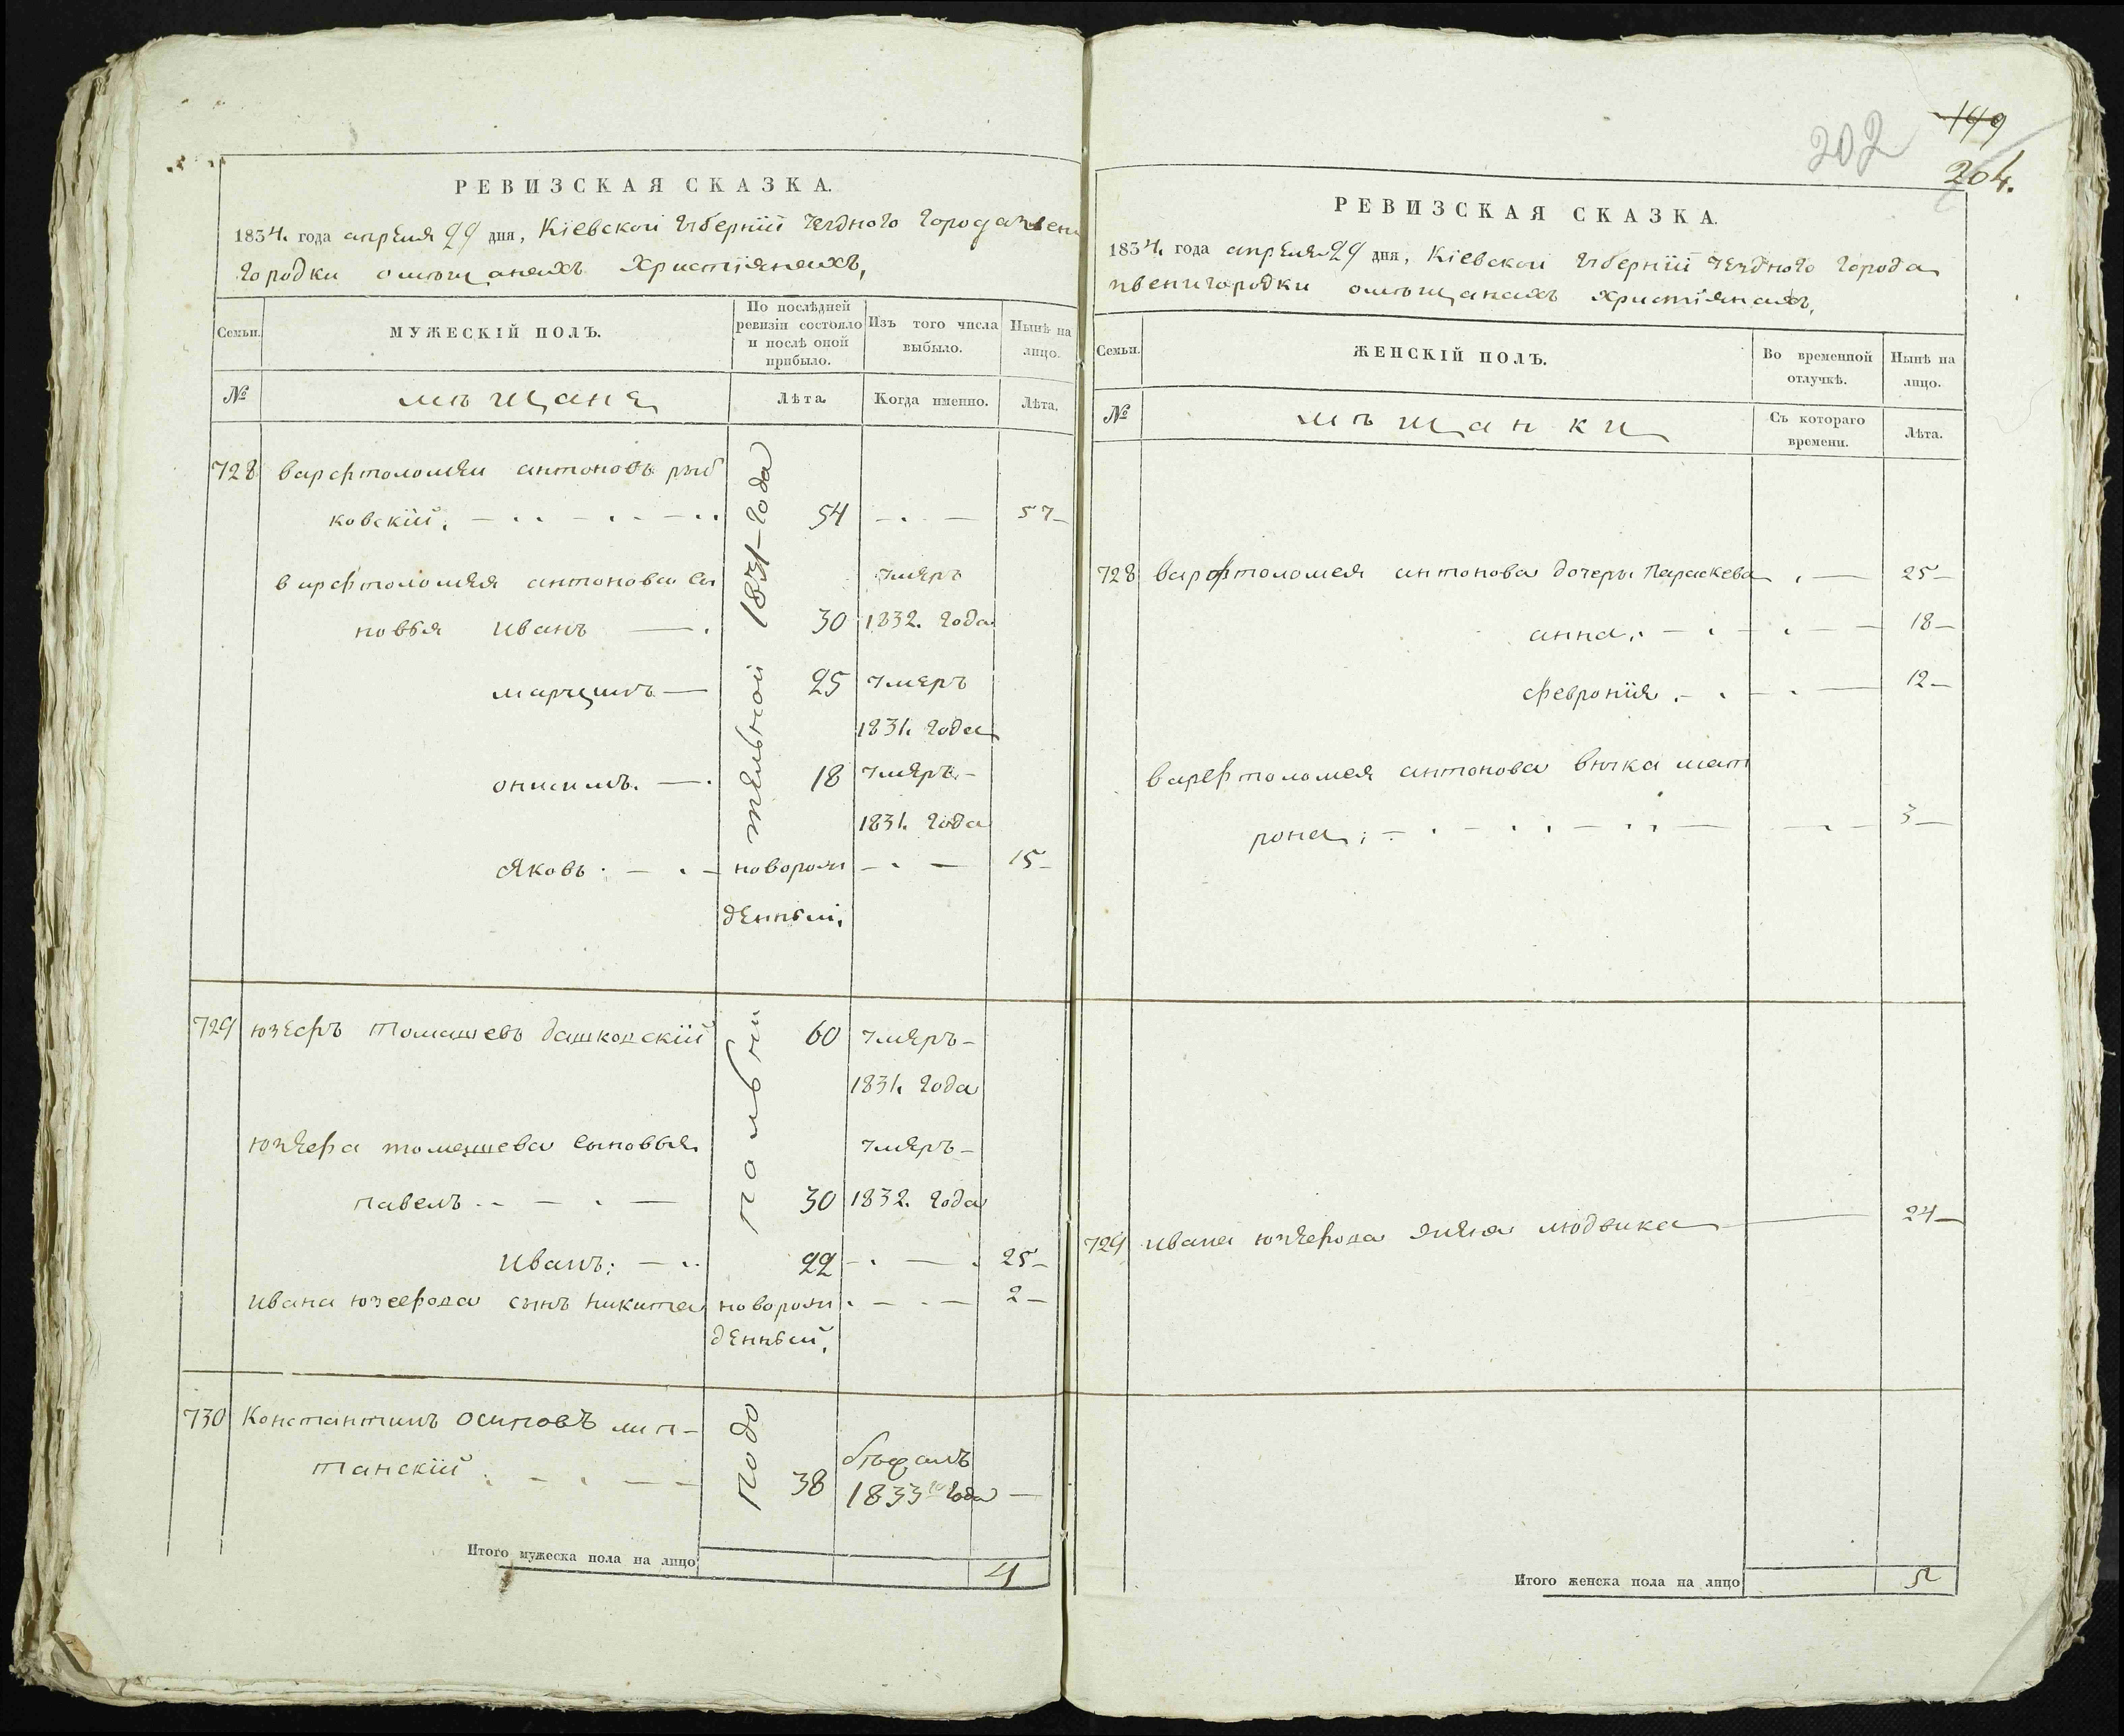 РЕВИЗСКАЯ СКАЗКА.
1834. года апреля 29 дня, Кіевской губерніи уездного города звени
городки омѣщанахъ христіянахъ,
Семьи.
МУЖЕСКІЙ ПОЛЪ.
По послѣдней ревизіи состояло и послѣ оной прибыло.
Изъ того числа выбыло.
Нынѣ на лицо.
№
мѣщане
Лѣта
Когда именно.
Лѣта.
подо пальній тельной 1831 года
728 варфтоломей антоновъ рыб
ковскій. 54 57
варфтоломея антонова сы умеръ
новья иванъ 30 1832. года
марцинъ 25 умеръ
1831. года
онисимъ. 18 умеръ
1831. года
яковъ новорож 15
денный.
729 юзефъ томашевъ дашковскій 60 умеръ
1831. года
юзефа томашева сыновья умеръ
павелъ 30 1832. года
иванъ: 22 25
ивана юзефова сынъ никита новорож 2
денный.
730 Константинъ осиповъ лип-
танскій 38 бѣжалъ
1833го года
Итого мужеска пола на лицо 4
202
199
204.
РЕВИЗСКАЯ СКАЗКА.
1834. года апреля 29 дня, Кіевской губерніи уездного города
звенигородки омѣщанахъ христіянахъ,
Семьи.
ЖЕНСКІЙ ПОЛЪ.
Во временной отлучкѣ.
Нынѣ на лицо.
№
мѣщанки
Съ котораго времени.
Лѣта.
728 варфтоломея антонова дочеры Параскева 25
анна. 18
февронія 12
варфтоломея антонова внучка мат
рона 3
729 ивана юзефова жена людвика 24
Итого женска пола на лицо 5